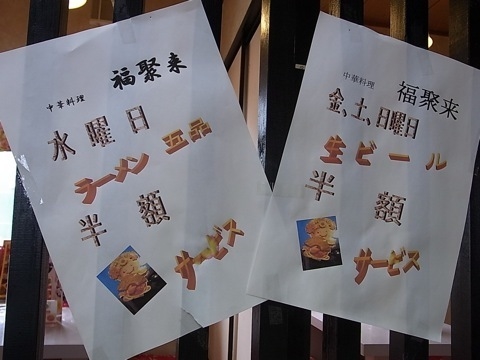 中華料理 福聚来
水曜日
ラーメン 五品
半額
サービス
中華料理 福聚来
金、土、日曜日
生ビール
半額
サービス